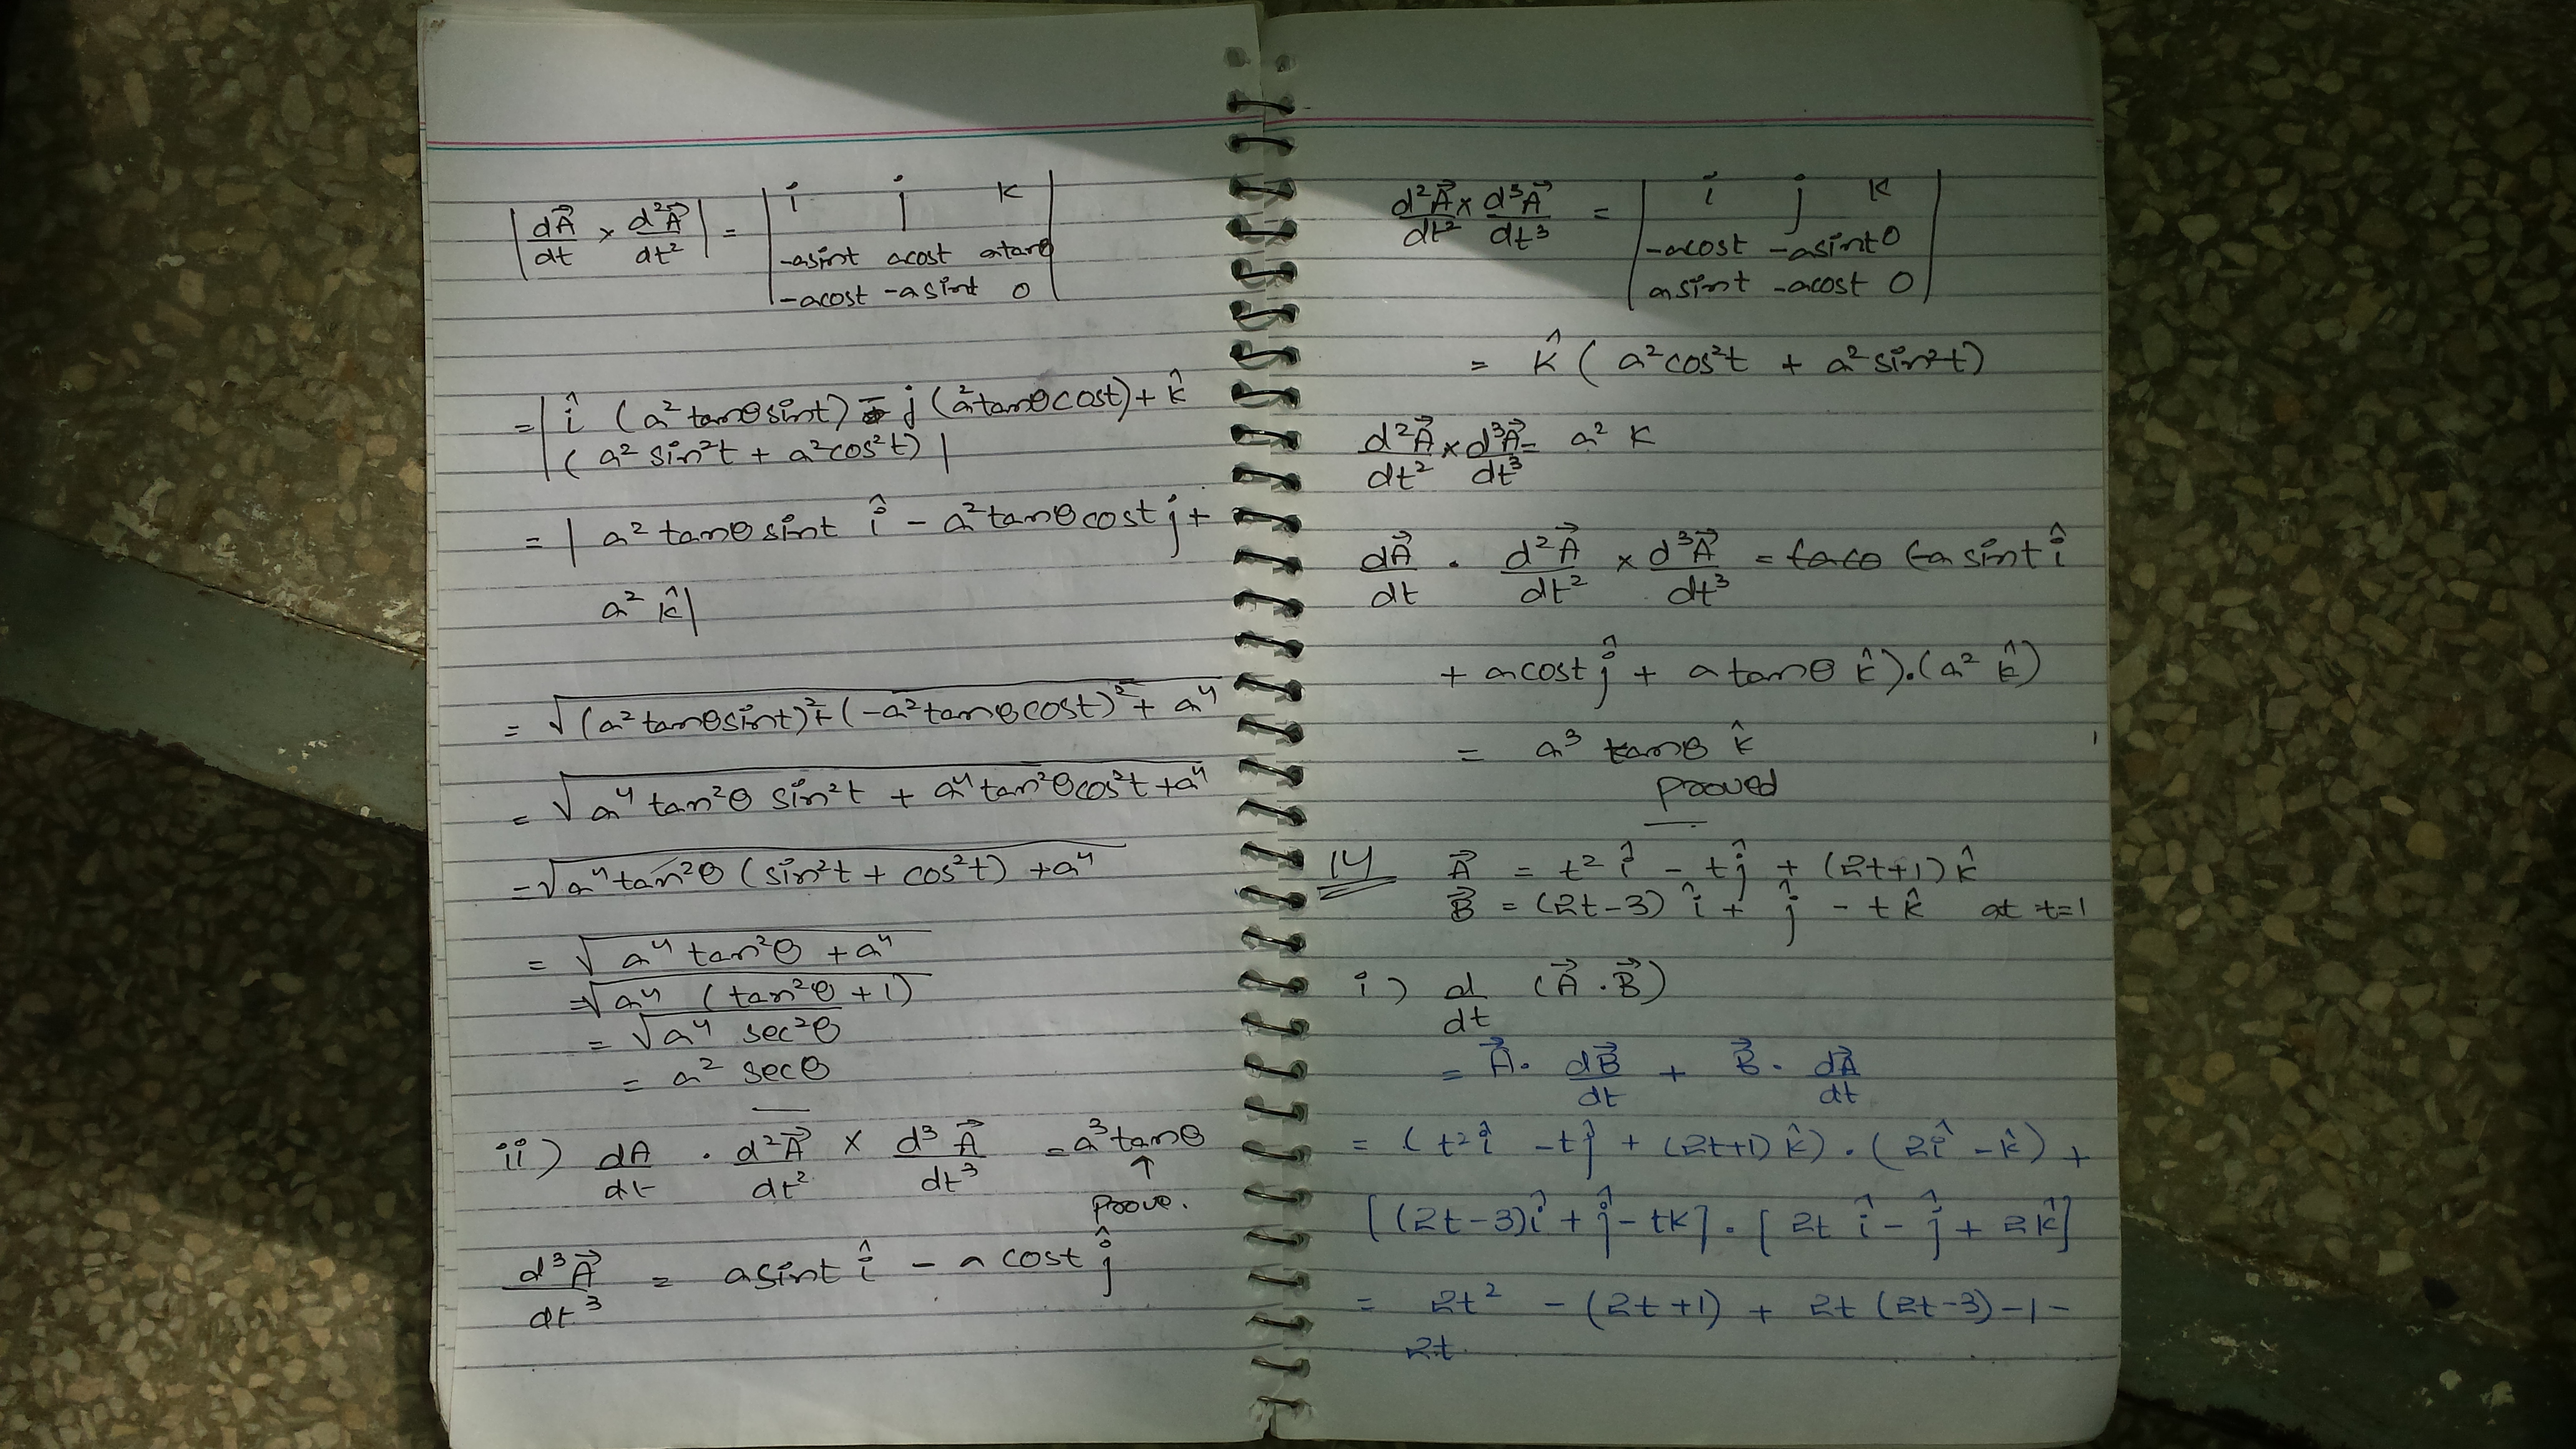 |dA⃗/dt × d²A⃗/dt²| = | i j k
-asint acost atanθ
-acost -asint 0 |
= | î (a² tanθ sint) - j (a² tanθ cost) + k̂
( a² sin²t + a²cos²t) |
= | a² tanθ sint î - a² tanθ cost j +
a² k̂ |
= √(a² tanθ sint)² + (-a² tanθ cost)² + a⁴
= √a⁴ tan²θ sin²t + a⁴ tan²θ cos²t + a⁴
= √a⁴ tan²θ (sin²t + cos²t) + a⁴
= √a⁴ tan²θ + a⁴
= √a⁴ (tan²θ + 1)
= √a⁴ sec²θ
= a² secθ
ii) dA/dt · d²A⃗/dt² × d³A⃗/dt³ = a³ tanθ
↑
prove.
d³A⃗/dt³ = asint î - a cost ĵ
d²A⃗/dt² × d³A⃗/dt³ = | i j k
-acost -asint 0
asint -acost 0 |
= k̂ ( a²cos²t + a² sin²t)
d²A⃗/dt² × d³A⃗/dt³ = a² k
dA⃗/dt · d²A⃗/dt² × d³A⃗/dt³ = (-a sint î
+ acost ĵ + a tanθ k̂).(a² k̂)
= a³ tanθ k̂
proved
14 A⃗ = t² î - tĵ + (2t+1) k̂
B⃗ = (2t-3) î + ĵ - t k̂ at t=1
i) d/dt (A⃗ . B⃗)
= A⃗. dB⃗/dt + B⃗. dA⃗/dt
= ( t² î - tĵ + (2t+1) k̂ ) . ( 2î - k̂ ) +
[ (2t-3)î + ĵ - tk ] . [ 2t î - ĵ + 2k̂ ]
= 2t² - (2t+1) + 2t (2t-3) -1 -
2t